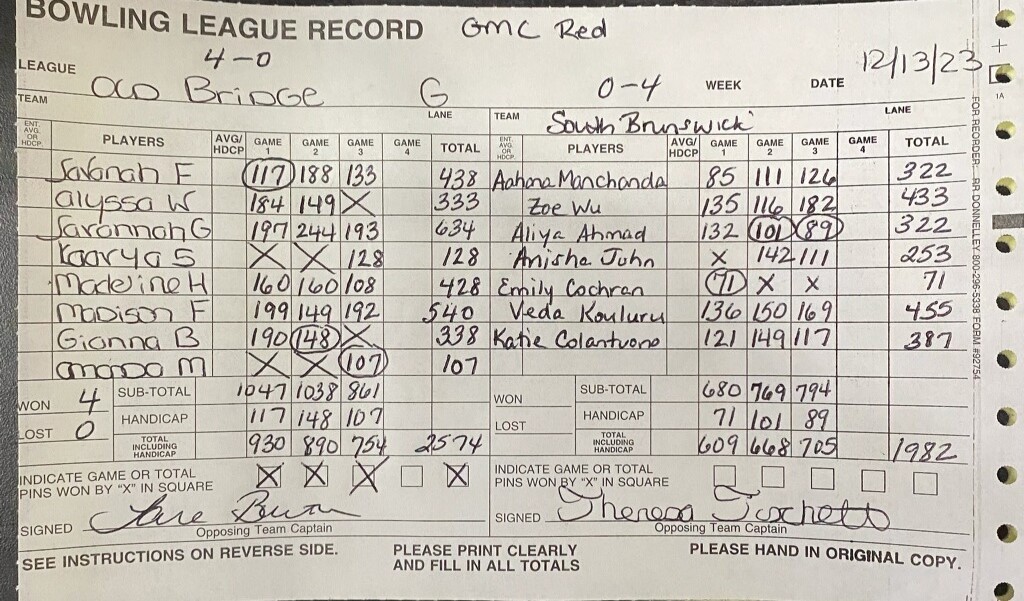 BOWLING LEAGUE RECORD GMC Red
LEAGUE 4-0 0-4 WEEK DATE 12/13/23
TEAM Old Bridge G LANE TEAM South Brunswick LANE
1A
ENT. AVG. OR HDCP. PLAYERS AVG/HDCP GAME 1 GAME 2 GAME 3 GAME 4 TOTAL ENT. AVG. OR HDCP. PLAYERS AVG/HDCP GAME 1 GAME 2 GAME 3 GAME 4 TOTAL
Savanah F 117 188 133 438 Aahana Manchanda 85 111 126 322
Alyssa W 184 149 X 333 Zoe Wu 135 116 182 433
Savannah G 197 244 193 634 Aliya Ahmad 132 101 89 322
Kaarya S X X 128 128 Anisha John X 142 111 253
Madeine H 160 160 108 428 Emily Cochran 71 X X 71
Madison F 199 149 192 540 Veda Kouluru 136 150 169 455
Gianna B 190 148 X 338 Katie Colantuono 121 149 117 387
Amanda M X X 107 107
WON 4 SUB-TOTAL 1047 1038 861 WON SUB-TOTAL 680 769 794
LOST 0 HANDICAP 117 148 107 LOST HANDICAP 71 101 89
TOTAL INCLUDING HANDICAP 930 890 754 2574 TOTAL INCLUDING HANDICAP 609 668 705 1982
INDICATE GAME OR TOTAL PINS WON BY "X" IN SQUARE X X X X INDICATE GAME OR TOTAL PINS WON BY "X" IN SQUARE
SIGNED Opposing Team Captain SIGNED Theresa Opposing Team Captain
SEE INSTRUCTIONS ON REVERSE SIDE. PLEASE PRINT CLEARLY AND FILL IN ALL TOTALS PLEASE HAND IN ORIGINAL COPY.
FOR REORDER: RR DONNELLEY 800-296-5338 FORM #92754